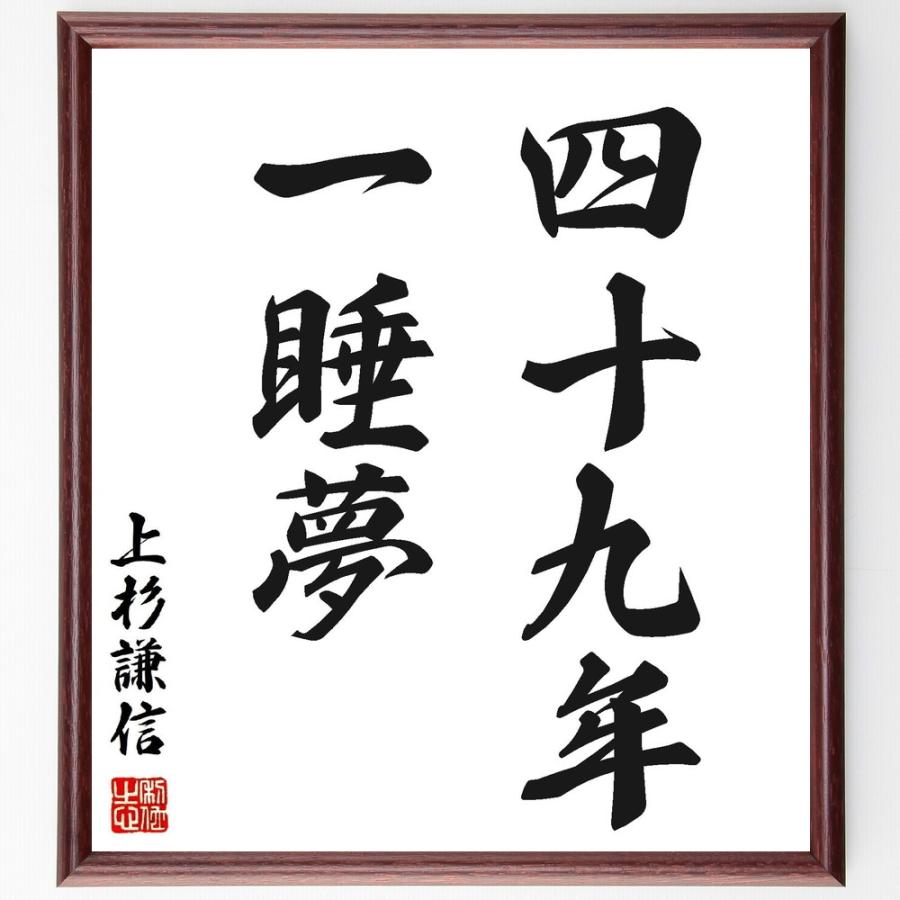 四十九年
一睡夢
上杉謙信